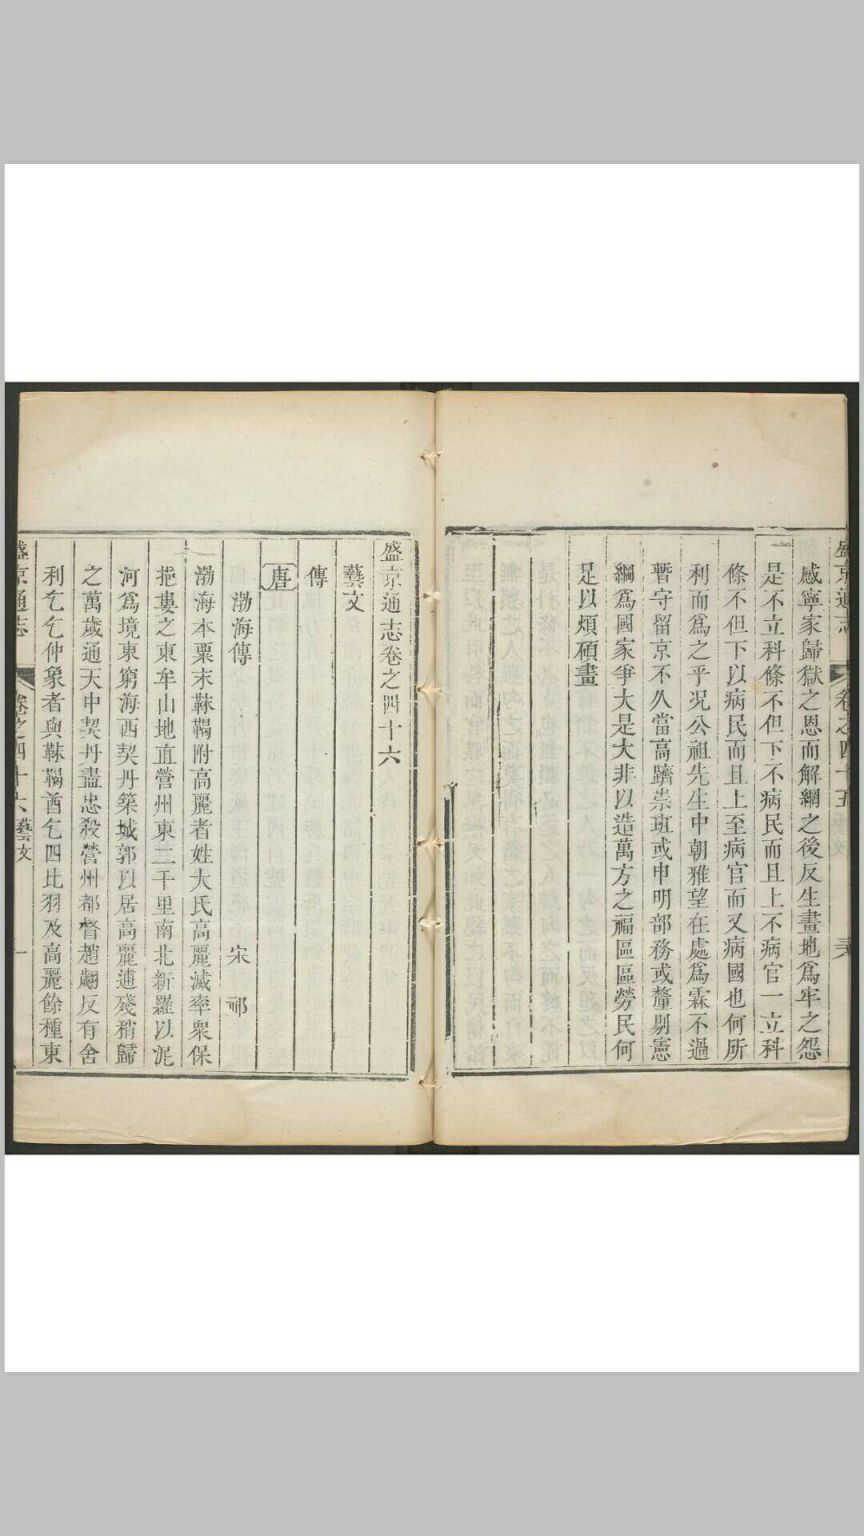 盛京通志 卷之四十五
感寧家歸獄之恩而解網之後反生畫地爲牢之怨
是不立科條不但下不病民而且上不病官一立科
條不但下以病民而且上至病官而又病國也何所
利而爲之乎况公祖先生中朝雅望在處爲霖不過
暫守留京不久當高躋崇班或申明部務或釐剔憲
綱爲國家爭大是大非以造萬方之福區區勞民何
足以煩碩畫
盛京通志卷之四十六
藝文
傳
唐
渤海傳 宋祁
渤海本粟末靺鞨附高麗者姓大氏高麗滅率衆保
挹婁之東牟山地直營州東二千里南北新羅以泥
河爲境東窮海西契丹築城郭以居高麗逋殘稍歸
之萬歲通天中契丹盡忠殺營州都督趙翽反有舍
利乞乞仲象者與靺鞨酋乞四比羽及高麗餘種東
盛京通志 卷之四十六 藝文 一